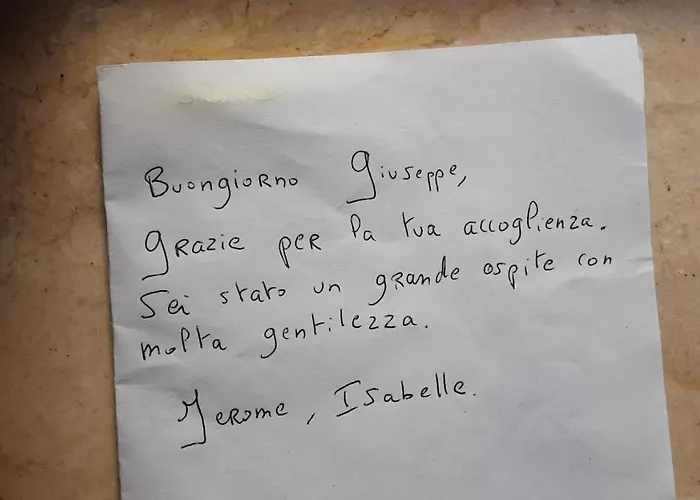 Buongiorno Giuseppe,
Grazie per la tua accoglienza.
Sei stato un grande ospite con
molta gentilezza.
Jerome, Isabelle.